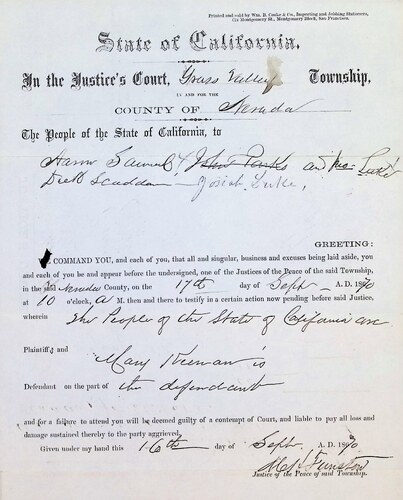 Printed and sold by Wm. B. Cooke & Co., Importing and Jobbing Stationers,
Montgomery St., Montgomery Block, San Francisco.
State of California.
In the Justice's Court, Grass Valley Township,
IN AND FOR THE
COUNTY OF Nevada
The People of the State of California, to
Aaron Samuel & John Parks and
Dick Scaddan Josiah Luke,
GREETING:
COMMAND YOU, and each of you, that all and singular, business and excuses being laid aside, you
and each of you be and appear before the undersigned, one of the Justices of the Peace of the said Township,
in the said Nevada County, on the 17th day of Sept A. D. 1870
at 10 o'clock, A M. then and there to testify in a certain action now pending before said Justice,
wherein The People of the State of California are
Plaintiffs and
Mary Keenan is
Defendant on the part of the defendant
and for a failure to attend you will be deemed guilty of a contempt of Court, and liable to pay all loss and
damage sustained thereby to the party aggrieved.
Given under my hand this 16th day of Sept. A. D. 1870
Funston
Justice of the Peace of said Township.